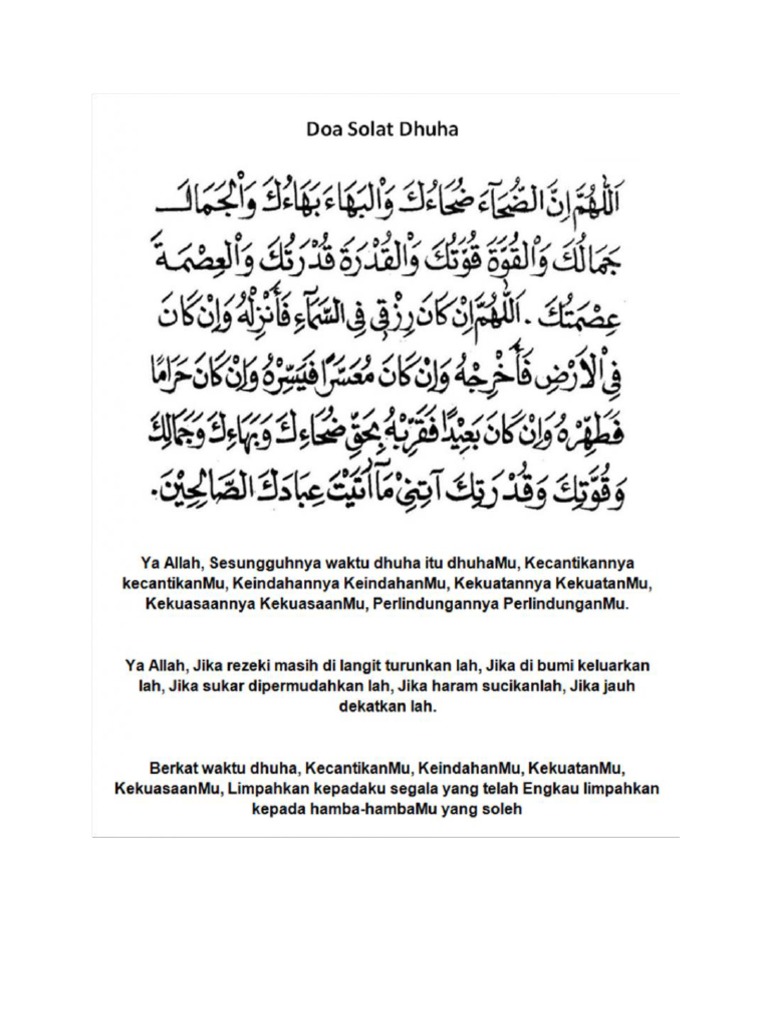 Doa Solat Dhuha
اَللّٰهُمَّ اِنَّ الضُّحَآءَ ضُحَاءُكَ وَالْبَهَاءَ بَهَاءُكَ وَالْجَمَالَ
جَمَالُكَ وَالْقُوَّةَ قُوَّتُكَ وَالْقُدْرَةَ قُدْرَتُكَ وَالْعِصْمَةَ
عِصْمَتُكَ . اَللّٰهُمَّ اِنْ كَانَ رِزْقِى فِى السَّمَآءِ فَأَنْزِلْهُ وَاِنْ كَانَ
فِى اْلاَرْضِ فَأَخْرِجْهُ وَاِنْ كَانَ مُعَسَّرًا فَيَسِّرْهُ وَاِنْ كَانَ حَرَامًا
فَطَهِّرْهُ وَاِنْ كَانَ بَعِيْدًا فَقَرِّبْهُ بِحَقِّ ضُحَاءِكَ وَبَهَاءِكَ وَجَمَالِكَ
وَقُوَّتِكَ وَقُدْرَتِكَ آتِنِيْ مَآ اٰتَيْتَ عِبَادَكَ الصَّالِحِيْنَ.
Ya Allah, Sesungguhnya waktu dhuha itu dhuhaMu, Kecantikannya
kecantikanMu, Keindahannya KeindahanMu, Kekuatannya KekuatanMu,
Kekuasaannya KekuasaanMu, Perlindungannya PerlindunganMu.
Ya Allah, Jika rezeki masih di langit turunkan lah, Jika di bumi keluarkan
lah, Jika sukar dipermudahkan lah, Jika haram sucikanlah, Jika jauh
dekatkan lah.
Berkat waktu dhuha, KecantikanMu, KeindahanMu, KekuatanMu,
KekuasaanMu, Limpahkan kepadaku segala yang telah Engkau limpahkan
kepada hamba-hambaMu yang soleh